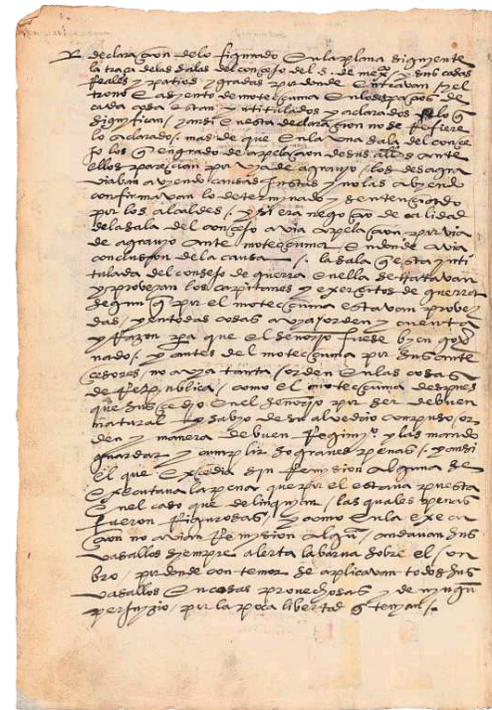 declaraçion de lo figurado en la plana siguiente
la traça de las salas del consejo del s. de mexco y sus casas
rreales y patios y gradas por donde entravan / y el
trono e asyento de moteçuma en los espaçios de
cada cosa estan yntitulados y aclarados lo q
significan / y ansi en esta declaraçion no se rrefiere
lo aclarado /. mas de que en la una sala del conse
jo los q en grado de apelaçion de sus allds ante
ellos pareçian por via de agravyo / los desagra
viaban avyendo causas justas y no las abyendo
confirmavan lo determinado y sentençiado
por los alcaldes /. y si era negoçio de calidad
de la sala del consejo avia apelaçion por via
de agravyo ante moteçuma / en donde avia
conclusyon de la causa /. la sala q esta ynti
tulada del consejo de guerra en ella se tratavan
y proveyan los capitanes y exerçitos de guerra
segun q por el moteçuma estavan provey
das / y en todas cosas avya / orden y cuenta
y rrazon pa que el señorio fuese byen gover
nado /. y antes del moteçuma por sus ante
çesores / no avya tanta / orden en las cosas
de rrepublica / como el moteçuma despues
que suçedio en el señorio por ser de buen
natural y sabyo de su alvedrio conpuso / or
den y manera de buen rregimyo y las mando
guardar y cumplir so graves penas /. y ansi
el que exçedia sin rremysion alguna se
executava la pena que por el estava puesta
en el caso que delinquiyan / las quales penas
fueron rrigurosas / y como en la execu
çion no avian rremysion algua / andavan sus
vasallos syempre alerta la barva sobre el / on
bro / por donde con temor se aplicavan todos sus
vasallos en cosas provechosas y de nyngu
perjuyzio / por la poca libertad q tenyan /.